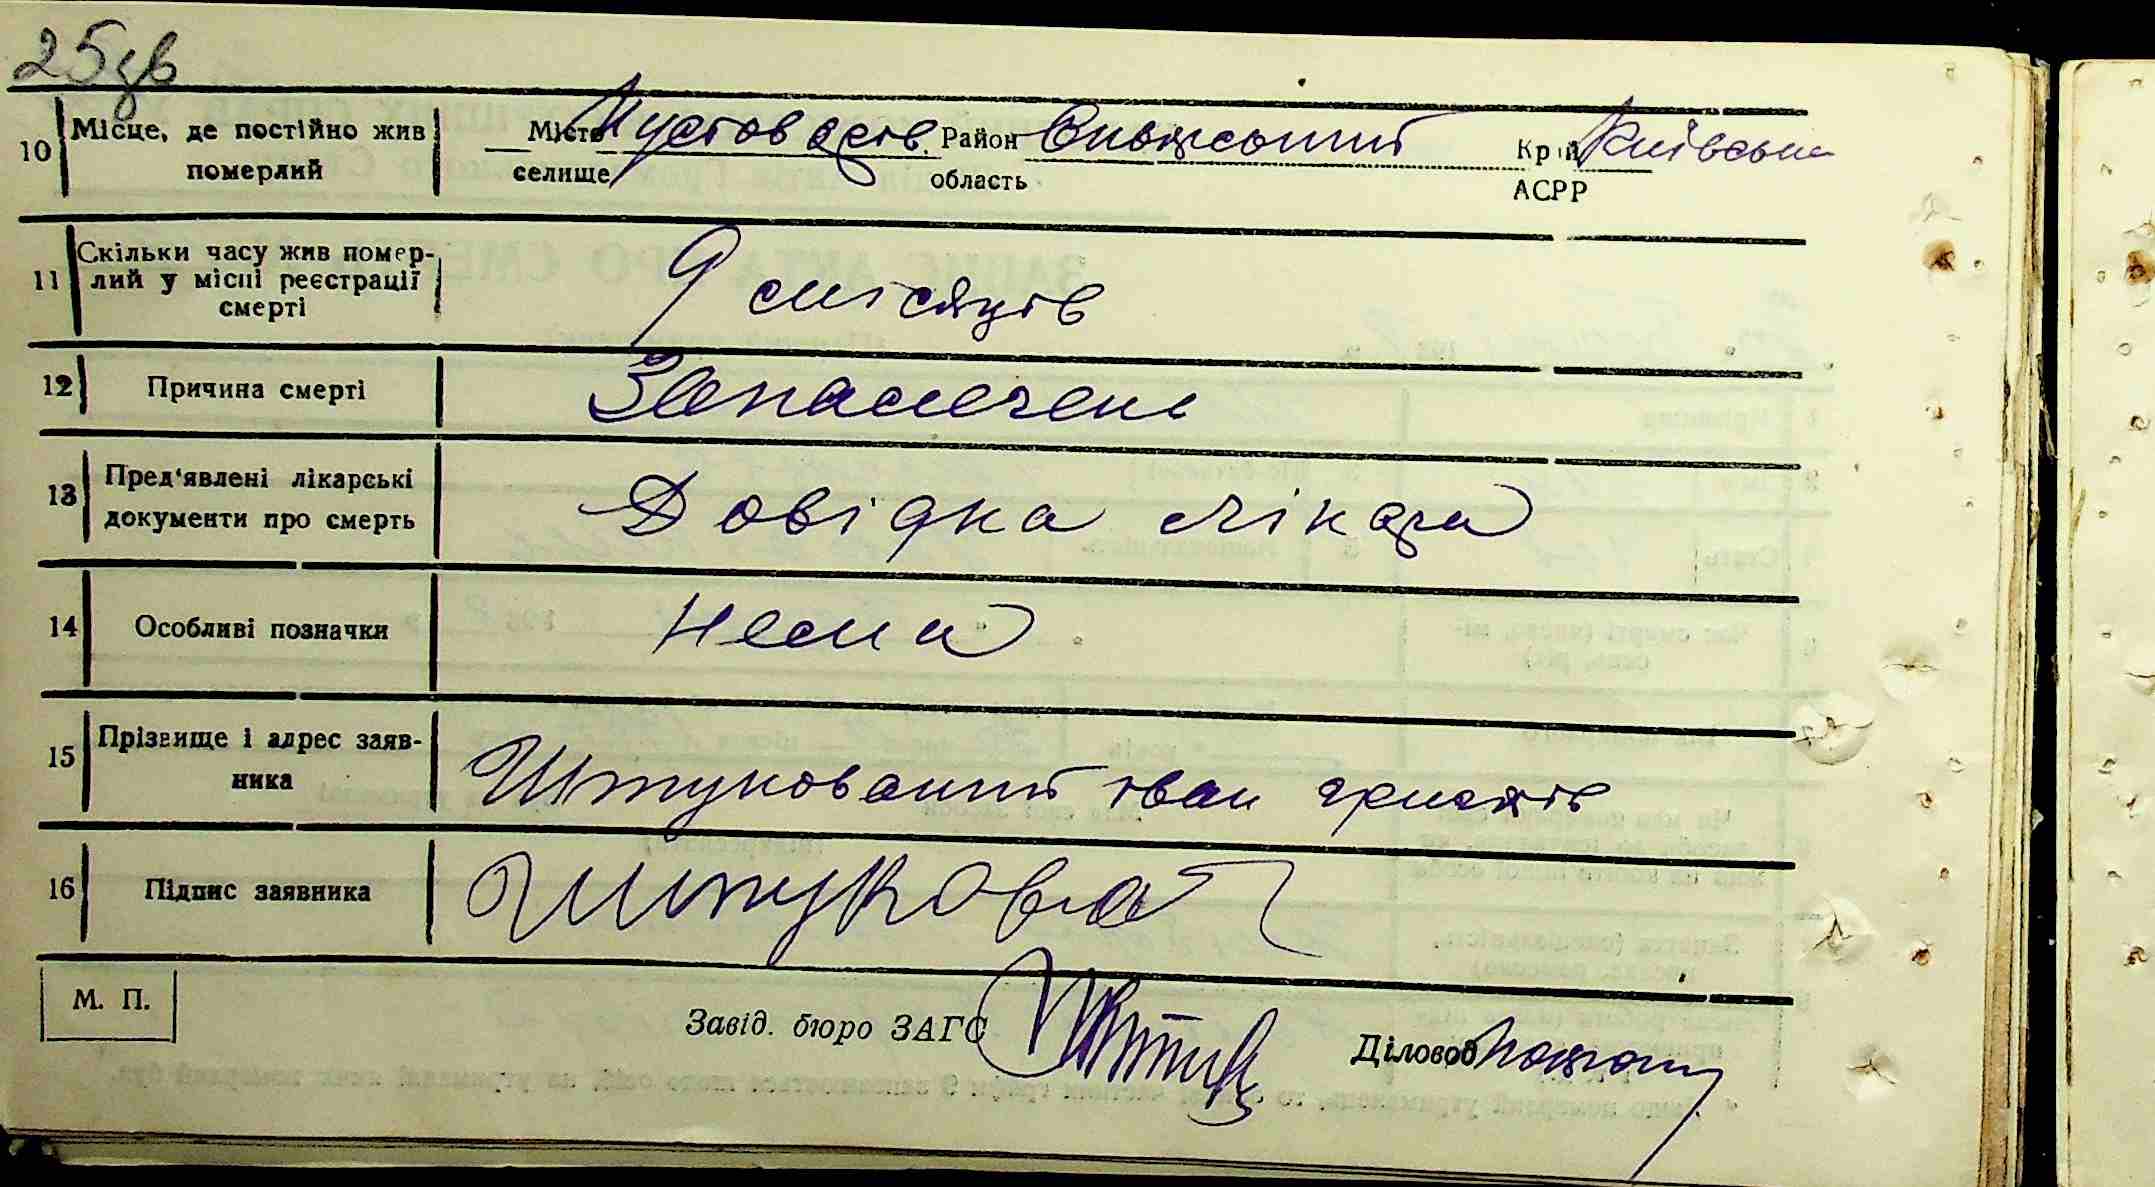 25зв
10 Місце, де постійно жив померлий Місто селище Пустоваров Район область Сквирський Край АСРР Київська
11 Скільки часу жив померлий у місці реєстрації смерті 9 місяців
12 Причина смерті Запалечень
13 Пред'явлені лікарські документи про смерть Довідка лікаря
14 Особливі позначки Нема
15 Прізвище і адрес заявника Штукований Іван
16 Підпис заявника Штукова
М. П.
Завід. бюро ЗАГС
Діловод